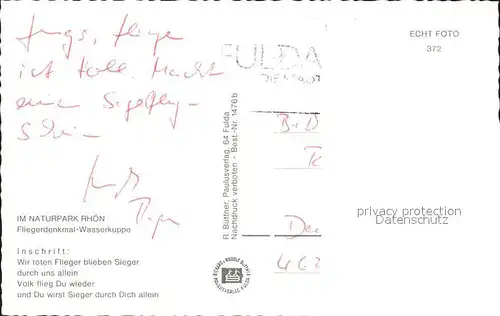 Jungs, fliegen
ist toll. Macht
einen Segelflug-
Schein
IM NATURPARK RHÖN
Fliegerdenkmal-Wasserkuppe
Inschrift:
Wir toten Flieger blieben Sieger
durch uns allein
Volk flieg Du wieder
und Du wirst Sieger durch Dich allein
R. Büttner, Paulusverlag, 64 Fulda
Nachdruck verboten - Best.-Nr. 1476b
FULDA
ECHT FOTO
372
privacy protection
Datenschutz